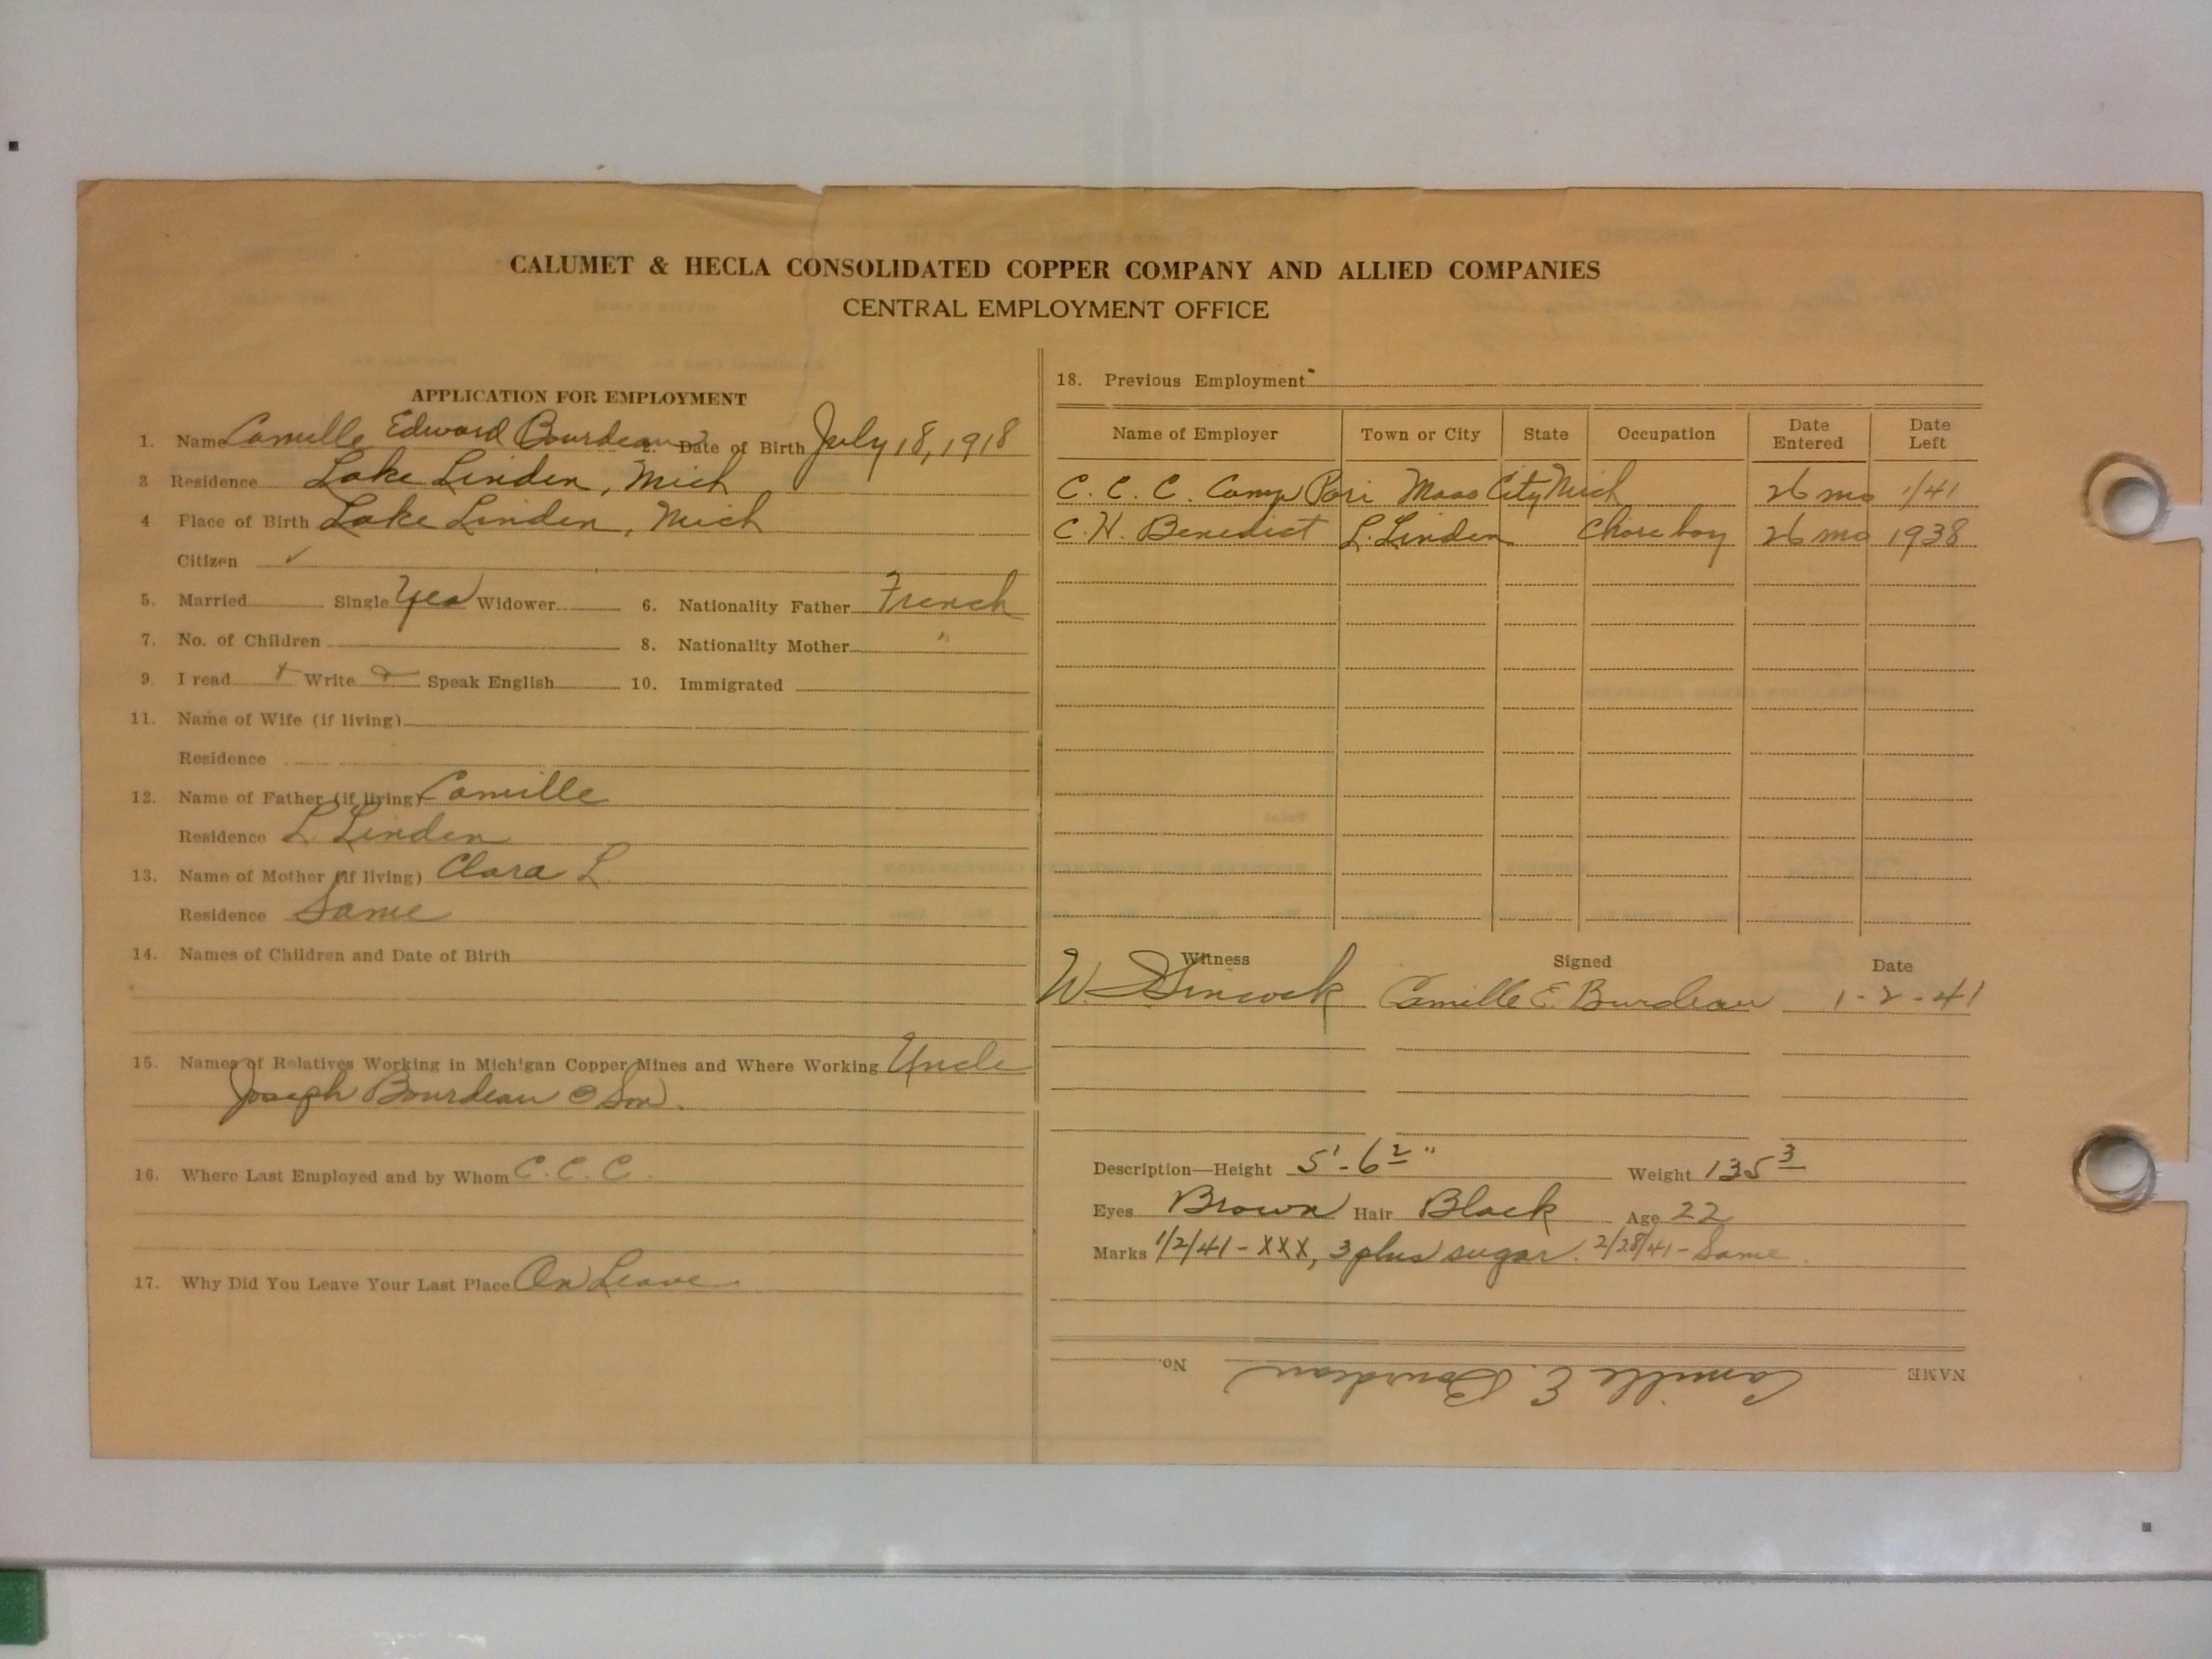 CALUMET & HECLA CONSOLIDATED COPPER COMPANY AND ALLIED COMPANIES
CENTRAL EMPLOYMENT OFFICE
APPLICATION FOR EMPLOYMENT
1. Name Camille Edward Bourdeau 2. Date of Birth July 18, 1918
3 Residence Lake Linden, Mich
4 Place of Birth Lake Linden, Mich
Citizen ✓
5. Married Single Yes Widower 6. Nationality Father French
7. No. of Children 8. Nationality Mother "
9. I read Write Speak English 10. Immigrated
11. Name of Wife (if living)
Residence
12. Name of Father (if living) Camille
Residence L. Linden
13. Name of Mother (if living) Clara L.
Residence Same
14. Names of Children and Date of Birth
15. Names of Relatives Working in Michigan Copper Mines and Where Working Uncle
Joseph Bourdeau & Son.
16. Where Last Employed and by Whom C.C.C.
17. Why Did You Leave Your Last Place On Leave.
18. Previous Employment
Name of Employer Town or City State Occupation Date Entered Date Left
C. C. C. Camp Pori Mass City Mich 26 mo 1/41
C. H. Benedict L. Linden Chore boy 26 mo 1938
Witness Signed Date
W. Camille E. Burdeau 1-2-41
Description—Height 5'-6 2" Weight 135 3
Eyes Brown Hair Black Age 22
Marks 1/2/41 - XXX, 3 plus sugar. 2/28/41 - Same.
NAME Camille E. Bourdeau No.